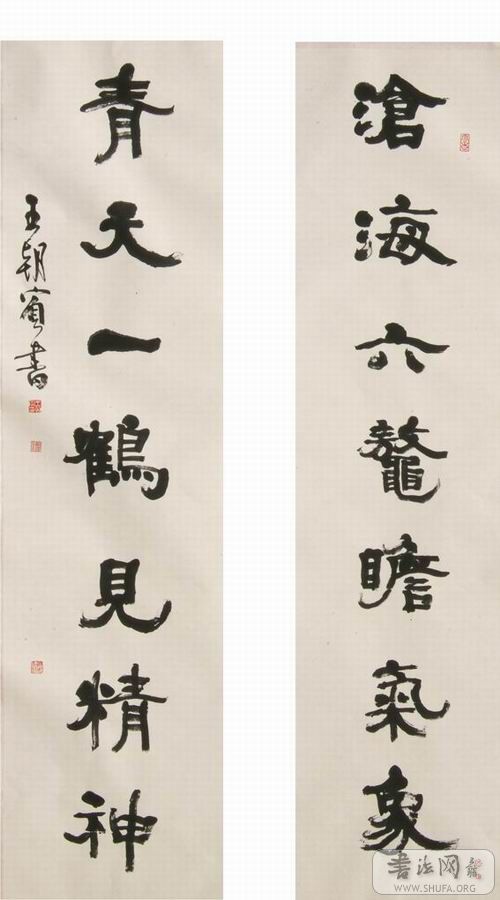 滄海六鼇瞻氣象
青天一鶴見精神
王朝賓書
書法网
WWW.SHUFA.ORG